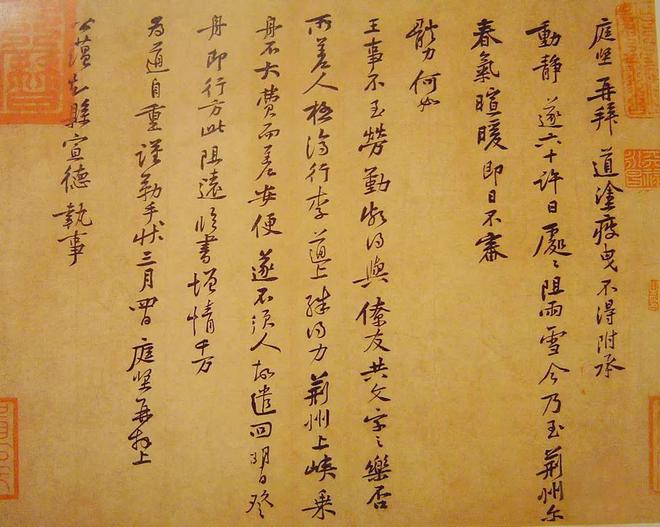 庭堅再拜 道塗疲曳不得附承
動靜 遂六十許日處〻阻雨雪今乃至荊州尓
春氣暄暖 即日不審
體力何如
王事不至勞勤頗得與僚友共文字之樂否
所差人極濟行李道上殊得力荊州上峽乘
舟不大費而差安便遂不須人故遣回明日登
舟即行方此阻遠臨書增情千万
為道自重謹勒手狀三月四日 庭堅再拜上
公蘊知縣宣德 執事